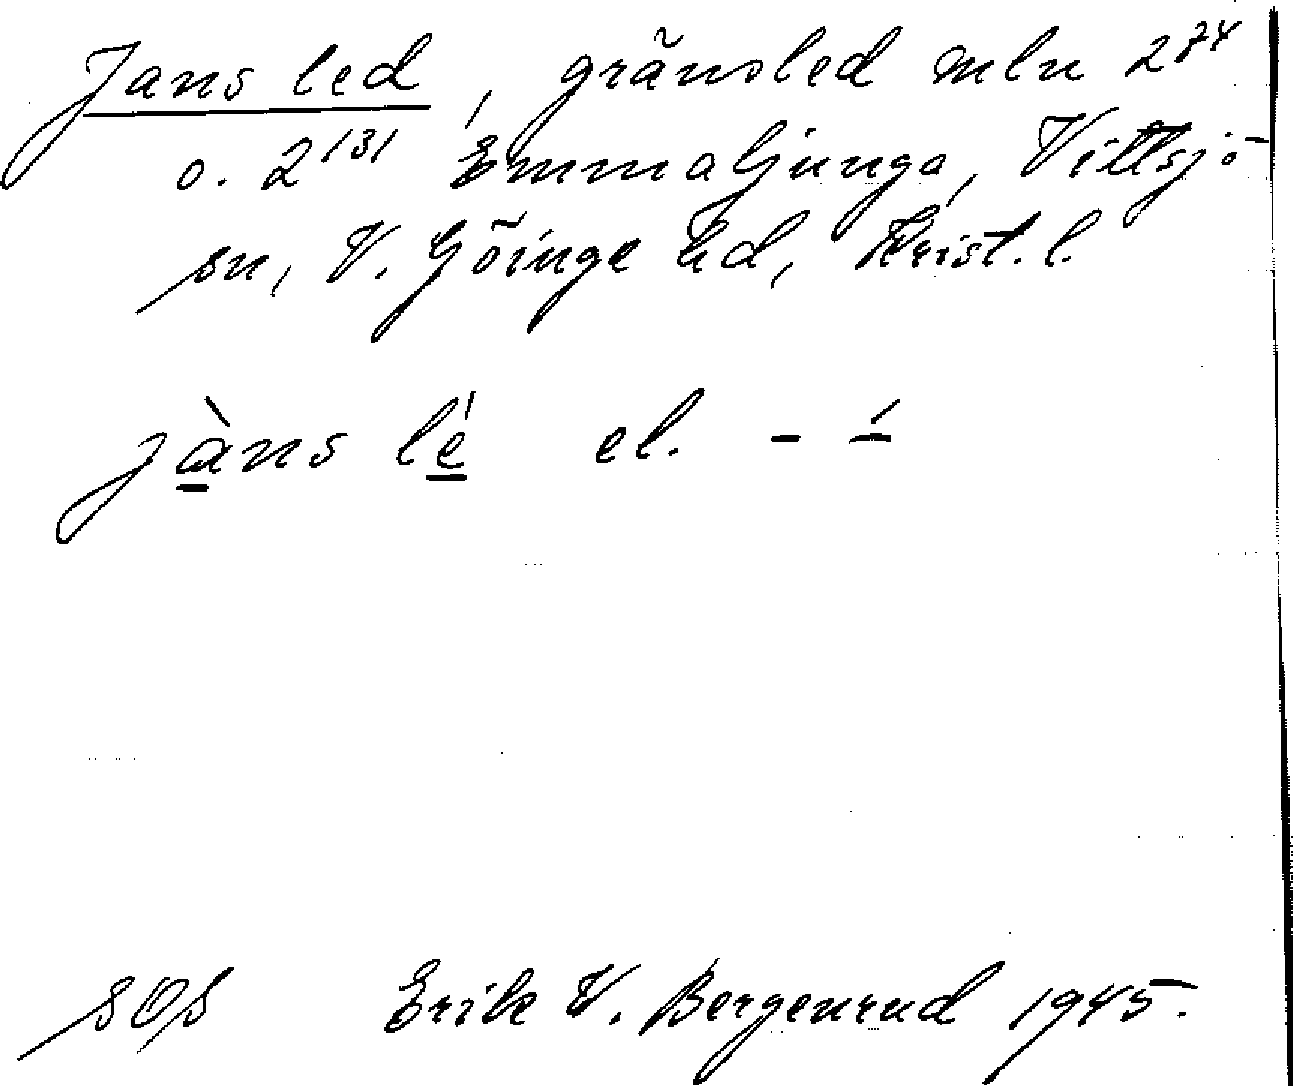 Jans led, gränsled mln 2⁷⁴
o. 2¹³¹ Emmaljunga, Vittsjö
sn, V. Göinge hd, Krist. l.
jàns lé el. - -́
Erik V. Bergenrud 1945.